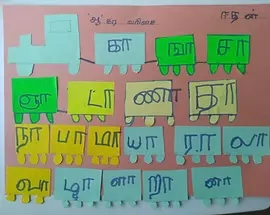 'ஆ' கர வரிசை
கா ஙா சா
ஞா டா ணா தா
நா பா மா யா ரா லா
வா ழா ளா றா னா